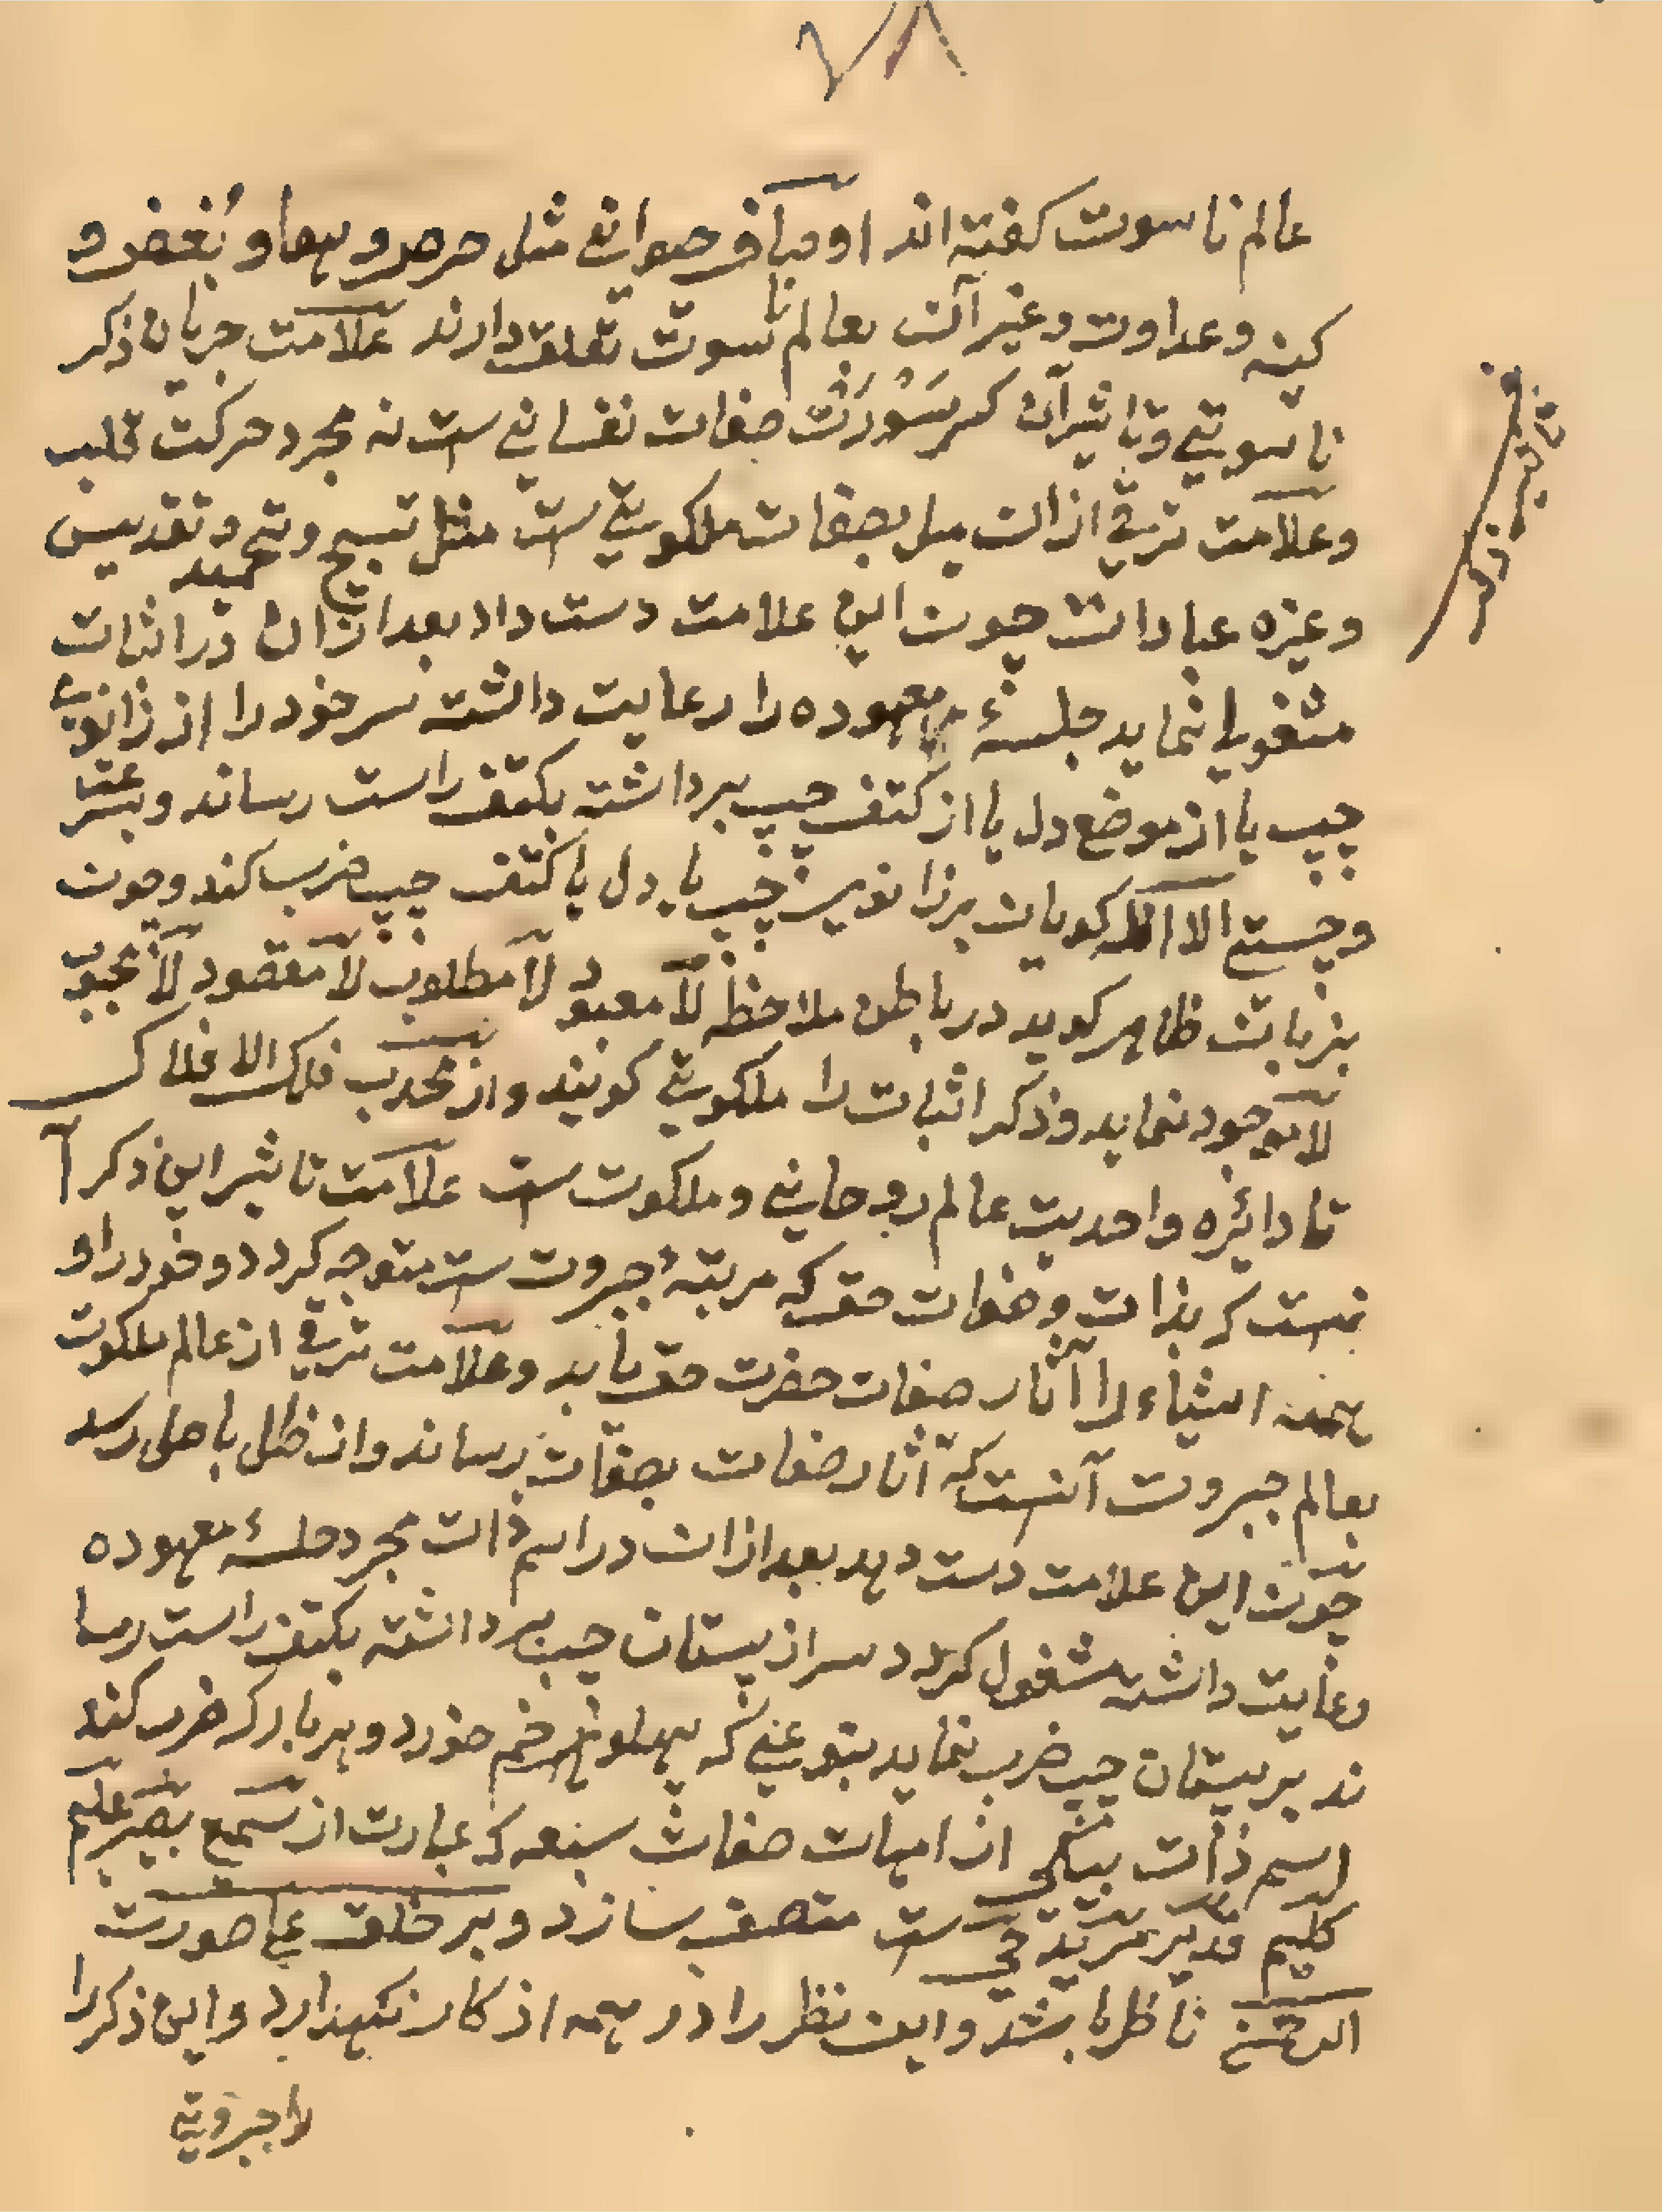 ۷۸
عالم ناسوت گفته اند اوصاف حیوانی مثل حرص و ہوا و بُغض و
کینه و عداوت و غیر آن بعالم ناسوت تعلق دارند علامت جریان ذکر
ناسوتی و تاثیر آن کسر سَوْرَت صفات نفسانی ست نه مجرد حرکت قلب
و علامت ترقی ازان میل بصفات ملکوتی ست مثل تسبیح و تحمید و تقدیس
و غیره عبادات چون این علامت دست داد بعد ازان در اثبات
مشغولی نماید جلسۂ معهوده را رعایت داشته سر خود را از زانوی
چپ یا از موضع دل یا از کتف چپ برداشته بکتف راست رساند و بسرعت
و چستی الا الله گویان بر زانوی چپ یا بر دل یا کتف چپ ضرب کند و چون
بزبان ظاهر گوید در باطن ملاحظہ لا معبود لا مطلوب لا مقصود لا محبوب
لا موجود نماید و ذکر اثبات را ملکوتی گویند و از محدب فلک الافلاک
تا دائره واحدیت عالم روحانی و ملکوت ست علامت تاثیر این ذکر آ
نست کہ بذات و صفات حق که مرتبۂ جبروت ست متوجه گردد و خود را و
همه اشیاء را آثار صفات حضرت حق یابد و علامت ترقی از عالم ملکوت
بعالم جبروت آنست که آثار صفات بصفات رساند و از ظل باصل رسد
چون این علامت دست دهد بعد ازان در اسم ذات مجرد جلسۂ معهوده
رعایت داشته مشغول گردد سر از پستان چپ برداشته بکتف راست رسا
ند بر پستان چپ ضرب نماید بنوعی که پہلو نیز خم خورد و ہر بار که ضرب کند
اسم ذات بیکی از امهات صفات سبعه که عبارت از سمیع بصیر علیم
کلیم قدیر مرید حی ست متصف سازد و بر خلق علی صورت
الرحمن ناظر باشد و این نظر را در ہمه اذکار نگهدارد و این ذکر را
را جبروتی
تاثیر ذکر